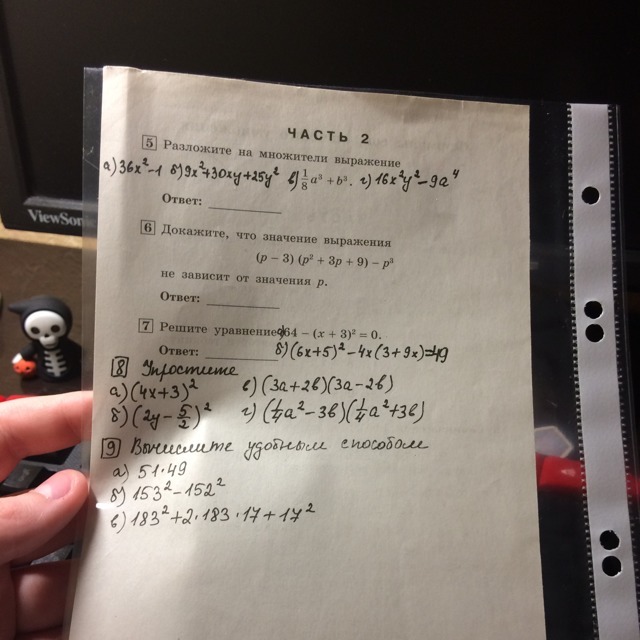 ЧАСТЬ 2
5 Разложите на множители выражение
а) 36x²-1 б) 9x²+30xy+25y² в) 1/8 a³ + b³. г) 16x²y²-9a⁴
Ответ: ________
6 Докажите, что значение выражения
(p − 3) (p² + 3p + 9) − p³
не зависит от значения p.
Ответ: ________
7 Решите уравнение а) 64 − (x + 3)² = 0.
б) (6x+5)²-4x(3+9x)=49
Ответ: ________
ViewSon
8 Упростите
а) (4x+3)² в) (3a+2b)(3a-2b)
б) (2y-5/2)² г) (1/4a²-3b)(1/4a²+3b)
9 Вычислите удобным способом
а) 51·49
б) 153²-152²
в) 183²+2·183·17+17²